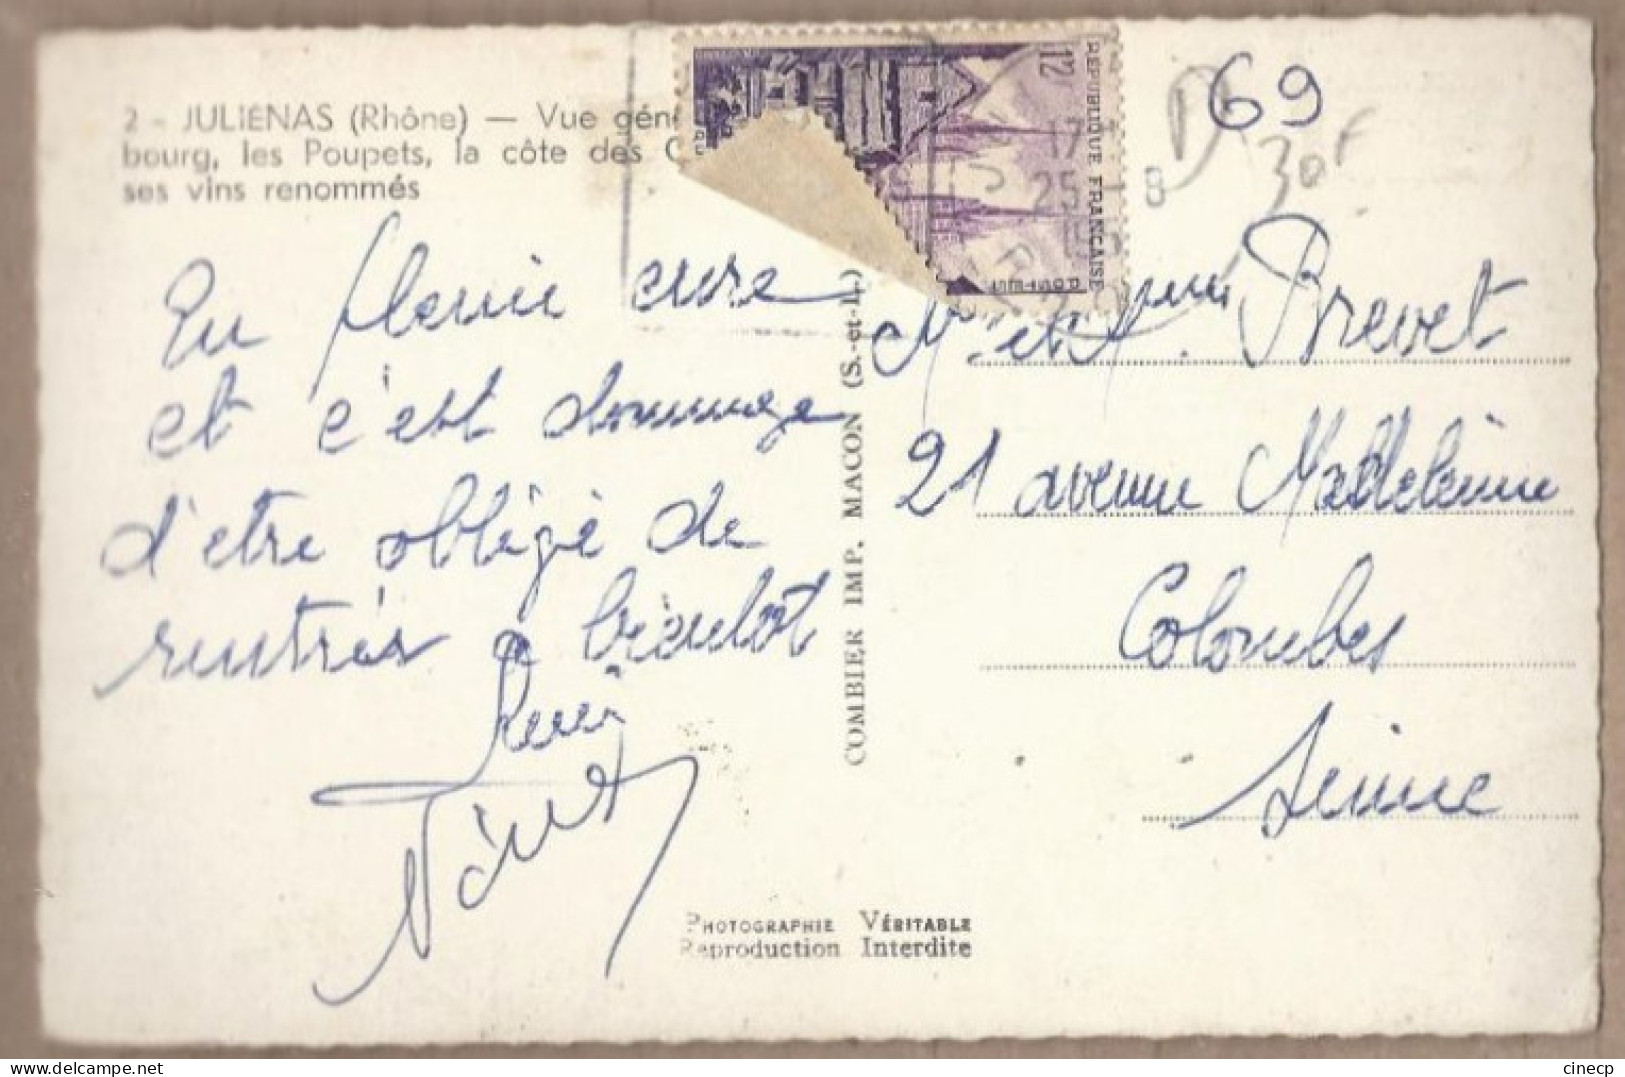 2 - JULIÉNAS (Rhône) — Vue géné
bourg, les Poupets, la côte des C
ses vins renommés
12
RÉPUBLIQUE FRANÇAISE
17
25 - 8
69
30F
En pleine
et c'est dommage
d'être obligé de
rentrer a
COMBIER IMP. MACON (S.-et-L.)
Brevet
21 avenue Madeleine
Colombes
Seine
PHOTOGRAPHIE VÉRITABLE
Reproduction Interdite
cinecp